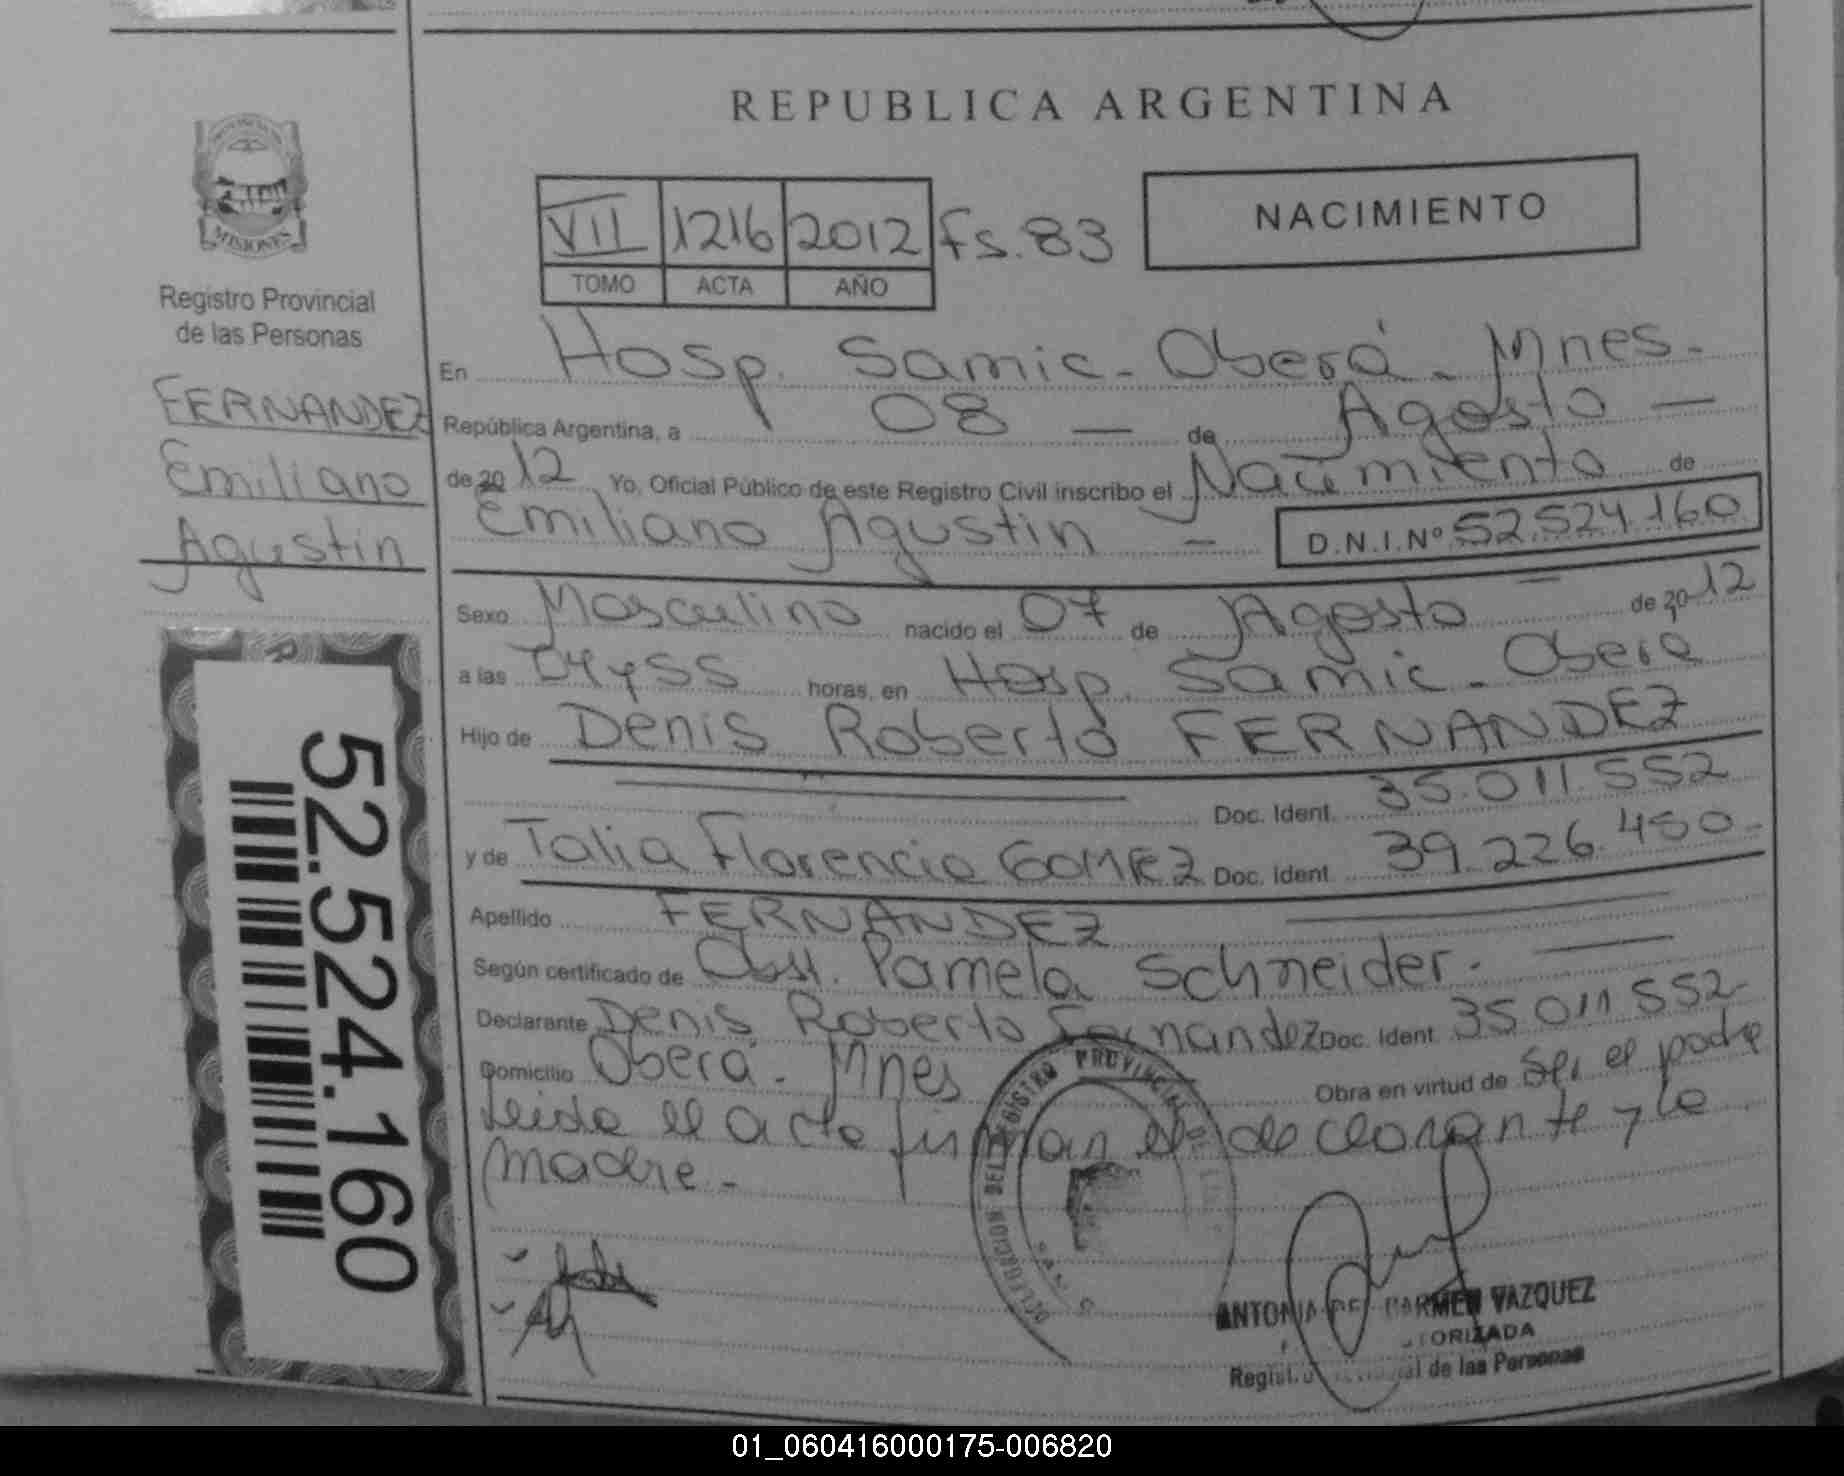 REPUBLICA ARGENTINA
PROVINCIA DE
MISIONES
Registro Provincial
de las Personas
FERNANDEZ
Emiliano
Agustin
52.524.160
VII 1216 2012 Fs. 83
TOMO ACTA AÑO
NACIMIENTO
En Hosp. Samic - Oberá - Mnes.
República Argentina, a 08 — de Agosto —
de 20 12 Yo, Oficial Público de este Registro Civil inscribo el Nacimiento de
Emiliano Agustin — D.N.I.Nº 52.524.160
Sexo Masculino nacido el 07 de Agosto — de 20 12
a las 04y55 horas, en Hosp. Samic - Oberá
Hijo de Denis Roberto FERNANDEZ
Doc. Ident. 35.011.552
y de Talia Florencia GOMEZ Doc. Ident. 39.226.450-
Apellido FERNANDEZ
Según certificado de Obst. Pamela Schneider.
Declarante Denis Roberto Fernandez Doc. Ident. 35 011 552-
Domicilio Oberá - Mnes Obra en virtud de Ser el padre
Leida el acta firman el declarante y la
madre -
DELEGACION DEL REGISTRO PROVINCIAL DE LAS
ANTONIA DEL CARMEN VAZQUEZ
Personas
01_060416000175-006820